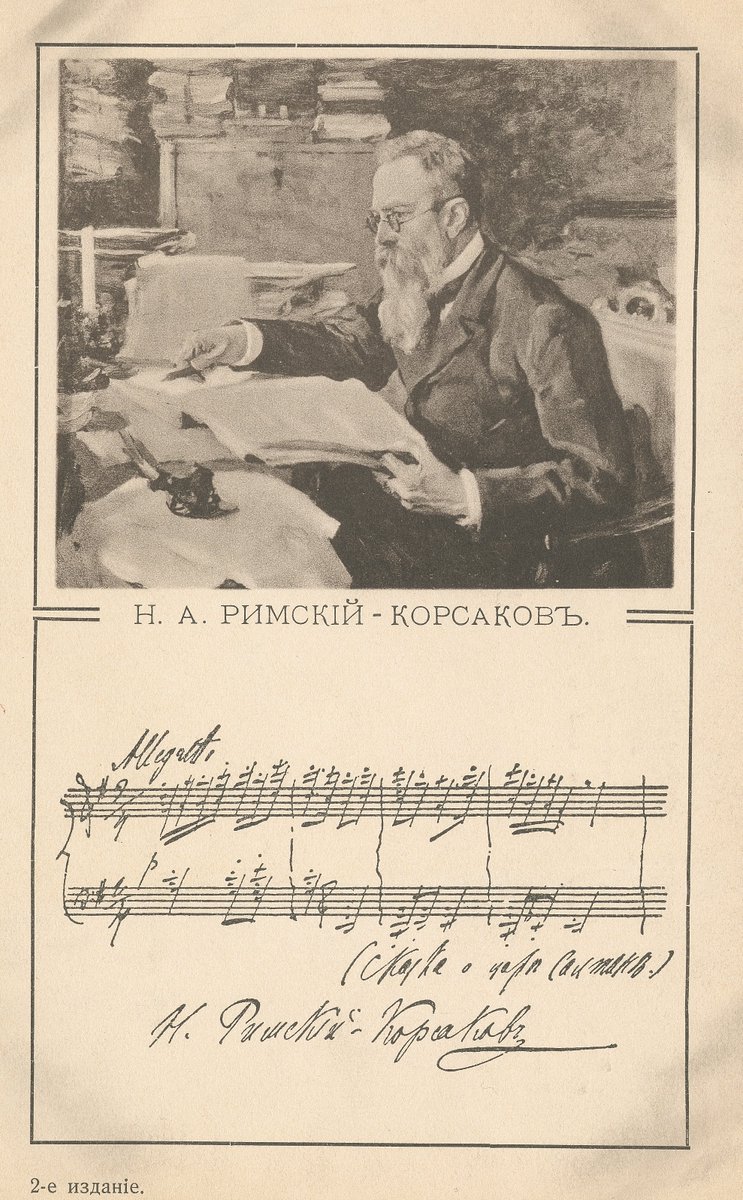 Н. А. РИМСКІЙ-КОРСАКОВЪ.
Allegretto
2/4
p
(Сказка о царѣ Салтанѣ.)
Н. Римскій-Корсаковъ
2-е изданіе.